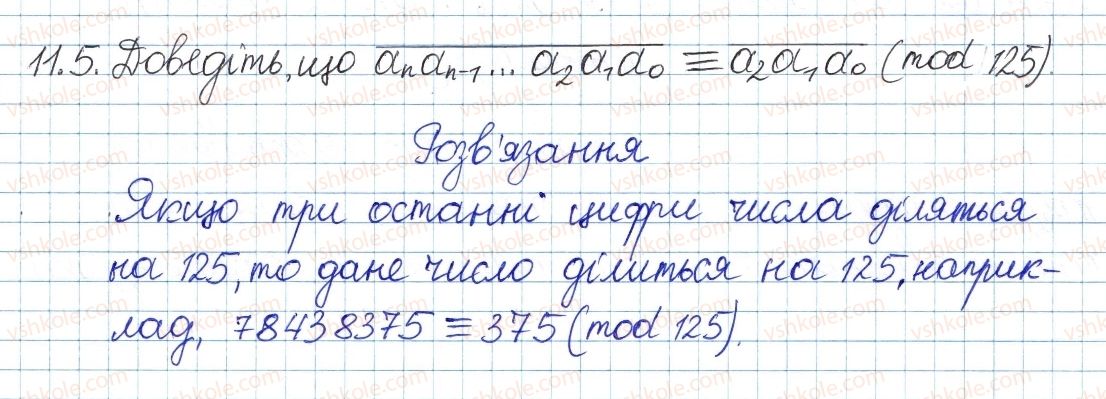 11.5. Доведіть, що aₙaₙ₋₁... a₂a₁a₀ ≡ a₂a₁a₀ (mod 125).
Розв'язання
Якщо три останні цифри числа діляться
на 125, то дане число ділиться на 125, наприк-
лад, 78438375 ≡ 375 (mod 125).